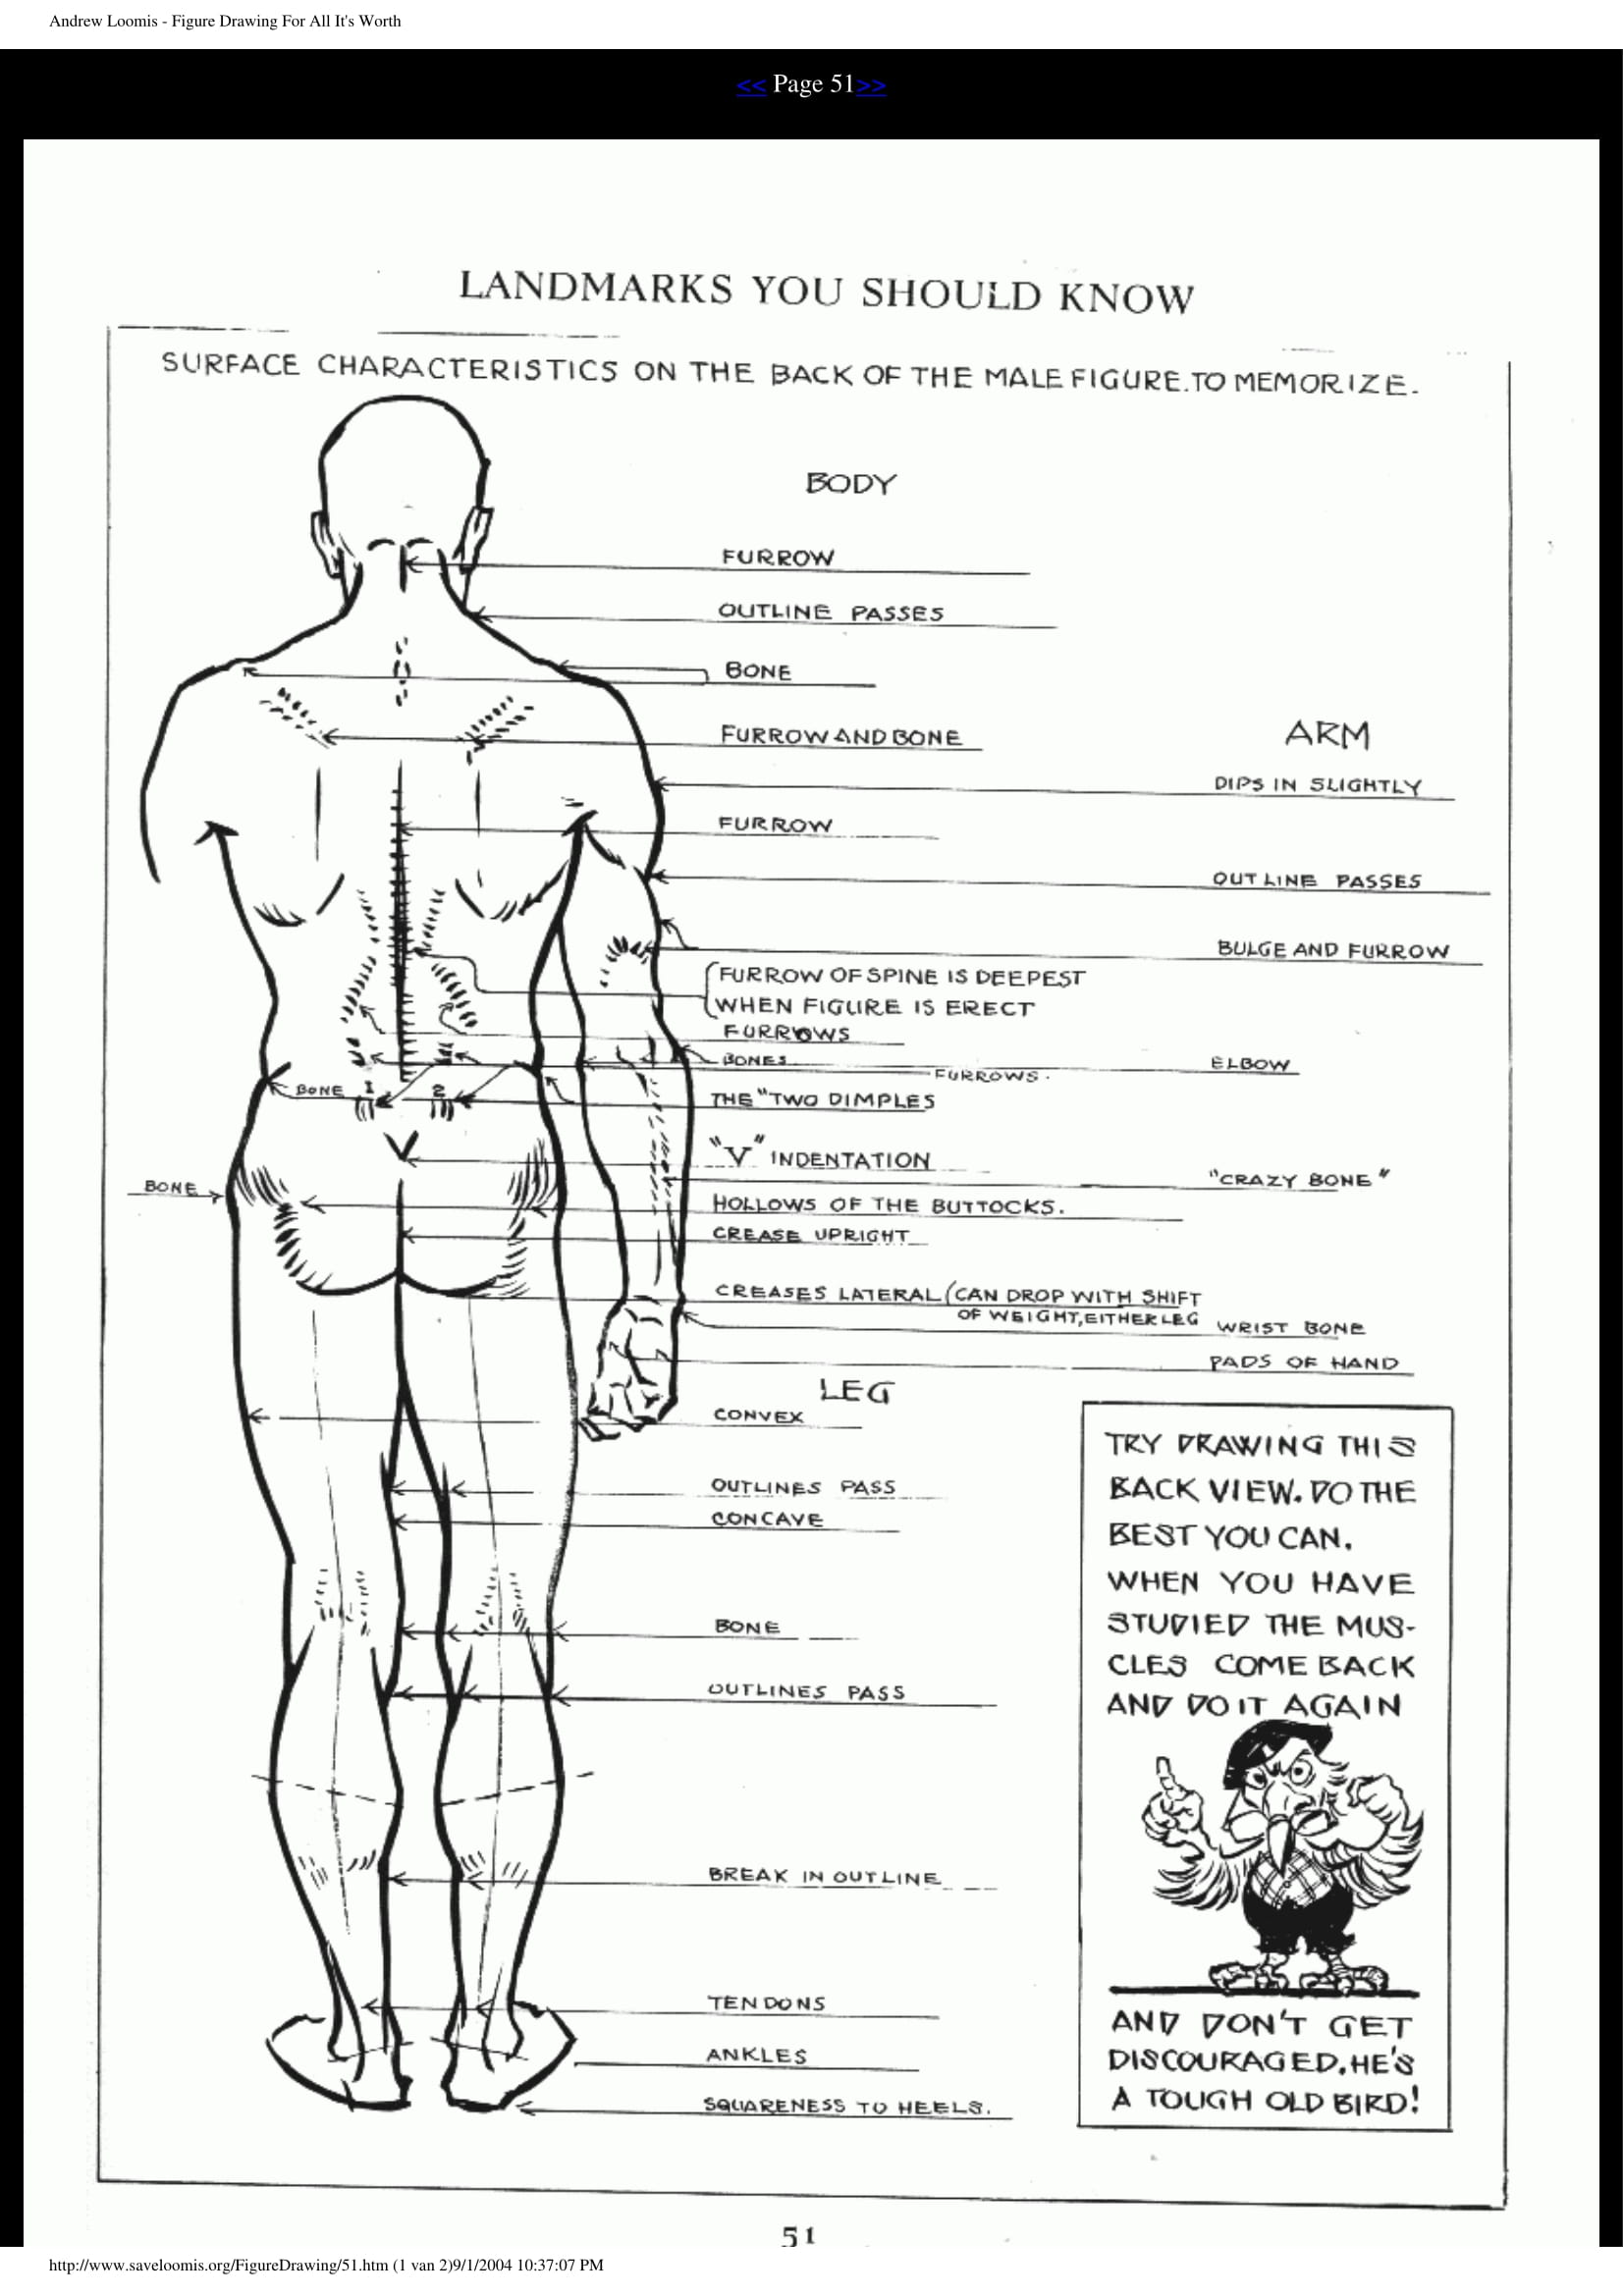 Andrew Loomis - Figure Drawing For All It's Worth
<< Page 51>>
LANDMARKS YOU SHOULD KNOW
SURFACE CHARACTERISTICS ON THE BACK OF THE MALE FIGURE. TO MEMORIZE.
BODY
FURROW
OUTLINE PASSES
BONE
FURROW AND BONE
ARM
DIPS IN SLIGHTLY
FURROW
OUTLINE PASSES
BULGE AND FURROW
FURROW OF SPINE IS DEEPEST
WHEN FIGURE IS ERECT
FURROWS
BONES
FURROWS.
ELBOW
BONE 1 2
THE "TWO DIMPLES
"V" INDENTATION
"CRAZY BONE"
BONE
HOLLOWS OF THE BUTTOCKS.
CREASE UPRIGHT
CREASES LATERAL (CAN DROP WITH SHIFT
OF WEIGHT, EITHER LEG
WRIST BONE
PADS OF HAND
LEG
CONVEX
OUTLINES PASS
CONCAVE
BONE
OUTLINES PASS
BREAK IN OUTLINE
TENDONS
ANKLES
SQUARENESS TO HEELS.
TRY DRAWING THIS
BACK VIEW. DO THE
BEST YOU CAN.
WHEN YOU HAVE
STUDIED THE MUS-
CLES COME BACK
AND DO IT AGAIN
AND DON'T GET
DISCOURAGED. HE'S
A TOUGH OLD BIRD!
51
http://www.saveloomis.org/FigureDrawing/51.htm (1 van 2)9/1/2004 10:37:07 PM